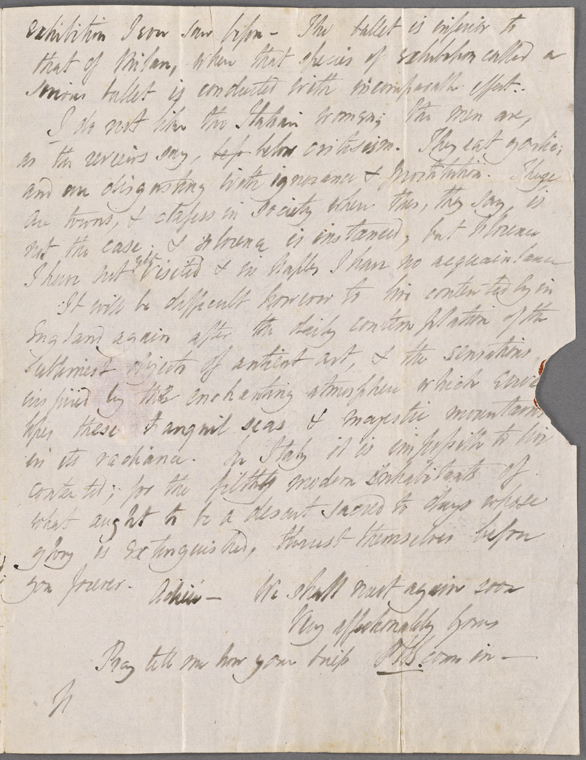 exhibition I ever saw before - The ballet is inferior to
that of Milan, where that species of exhibition called a
serious ballet is conducted with incomparable effect.
I do not like the Italian women; the men are,
as the reviews say, below criticism. They eat garlic;
and are disgusting with ignorance & prostitution. There
are towns, & classes in society where this, they say, is
not the case; & Florence is instanced, but Florence
I have not yet visited & in Naples I have no acquaintance
It will be difficult however to live contentedly in
England again after the daily contemplation of the
sublimest objects of antient art, & the sensations
inspired by the enchanting atmosphere which
these tranquil seas & majestic mountains
in its radiance. In Italy it is impossible to live
contented; for the filthy modern inhabitants of
what aught to be a desart sacred to days whose
glory is extinguished, thrust themselves before
you forever. Adieu - We shall meet again soon
Very affectionately yours
Pray tell me how your briefs PBS come in -